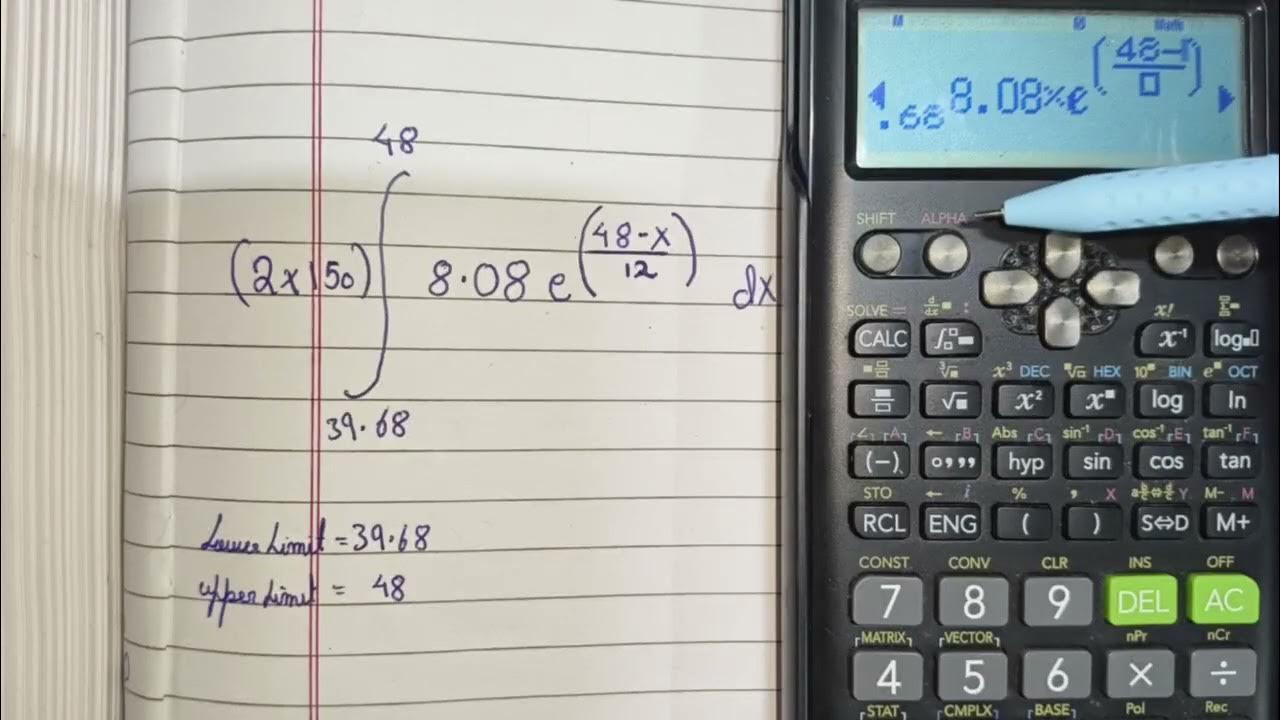 48
(2x150) ∫ 8.08 e^((48-x)/12) dx
39.68
Lower Limit = 39.68
upper Limit = 48
M Math
.68 8.08×e^((48-
SHIFT ALPHA
SOLVE = d/dx : x! Σ
CALC ∫ x⁻¹ log
x³ DEC HEX 10 BIN e OCT
x² log ln
∠ A ← B Abs C sin⁻¹ D cos⁻¹ E tan⁻¹ F
(−) °,,, hyp sin cos tan
STO ← i % , X Y M− M
RCL ENG ( ) S⇔D M+
CONST CONV CLR INS OFF
7 8 9 DEL AC
MATRIX VECTOR nPr nCr
4 5 6 × ÷
STAT CMPLX BASE Pol Rec